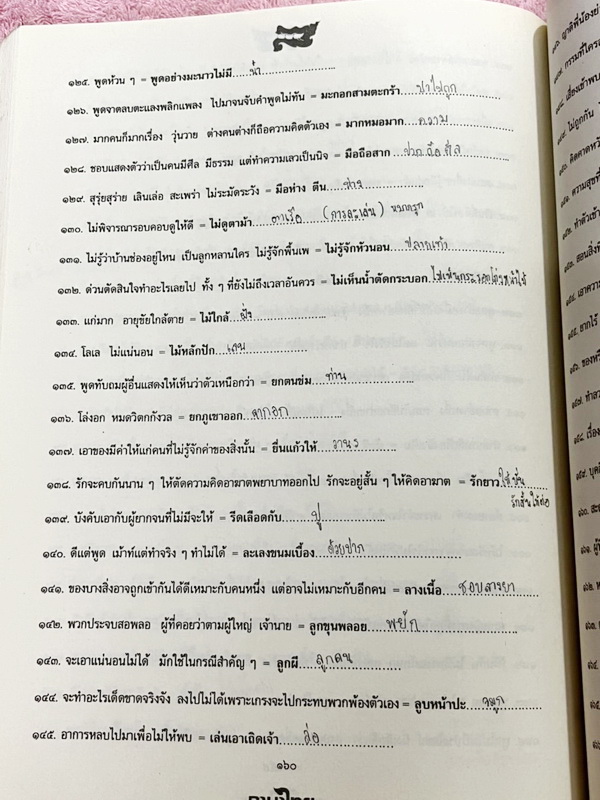 ๑๒๕. พูดห้วน ๆ = พูดอย่างมะนาวไม่มี.....น้ำ.....
๑๒๖. พูดจาตลบตะแลงพลิกแพลง ไปมาจนจับคำพูดไม่ทัน = มะกอกสามตะกร้า.....ปาไม่ถูก.....
๑๒๗. มากคนก็มากเรื่อง วุ่นวาย ต่างคนต่างก็ถือความคิดตัวเอง = มากหมอมาก.....ความ.....
๑๒๘. ชอบแสดงตัวว่าเป็นคนมีศีล มีธรรม แต่ทำความเลวเป็นนิจ = มือถือสาก.....ปากถือศีล.....
๑๒๙. สุรุ่ยสุร่าย เลินเล่อ สะเพร่า ไม่ระมัดระวัง = มือห่าง ตีน.....ห่าง.....
๑๓๐. ไม่พิจารณารอบคอบดูให้ดี = ไม่ดูตาม้า.....ตาเรือ (การละเล่น) หมากรุก
๑๓๑. ไม่รู้ว่าบ้านช่องอยู่ไหน เป็นลูกหลานใคร ไม่รู้จักพื้นเพ = ไม่รู้จักหัวนอน.....ปลายเท้า.....
๑๓๒. ด่วนตัดสินใจทำอะไรเลยไป ทั้ง ๆ ที่ยังไม่ถึงเวลาอันควร = ไม่เห็นน้ำตัดกระบอก.....ไม่เห็นกระรอกโก่งหน้าไม้
๑๓๓. แก่มาก อายุขัยใกล้ตาย = ไม้ใกล้.....ฝั่ง.....
๑๓๔. โลเล ไม่แน่นอน = ไม้หลักปัก.....เลน.....
๑๓๕. พูดทับถมผู้อื่นแสดงให้เห็นว่าตัวเหนือกว่า = ยกตนข่ม.....ท่าน.....
๑๓๖. โล่งอก หมดวิตกกังวล = ยกภูเขาออก.....จากอก.....
๑๓๗. เอาของมีค่าให้แก่คนที่ไม่รู้จักค่าของสิ่งนั้น = ยื่นแก้วให้.....วานร.....
๑๓๘. รักจะคบกันนาน ๆ ให้ตัดความคิดอาฆาตพยาบาทออกไป รักจะอยู่สั้น ๆ ให้คิดอาฆาต = รักยาวให้บั่น
รักสั้นให้ต่อ
๑๓๙. บังคับเอากับผู้ยากจนที่ไม่มีจะให้ = รีดเลือดกับ.....ปู.....
๑๔๐. ดีแต่พูด เม้าท์แต่ทำจริง ๆ ทำไม่ได้ = ละเลงขนมเบื้อง.....ด้วยปาก.....
๑๔๑. ของบางสิ่งอาจถูกเข้ากันได้ดีเหมาะกับคนหนึ่ง แต่อาจไม่เหมาะกับอีกคน = ลางเนื้อ.....ชอบลางยา.....
๑๔๒. พวกประจบสอพลอ ผู้ที่คอยว่าตามผู้ใหญ่ เจ้านาย = ลูกขุนพลอย.....พยัก.....
๑๔๓. จะเอาแน่นอนไม่ได้ มักใช้ในกรณีสำคัญ ๆ = ลูกผี.....ลูกคน.....
๑๔๔. จะทำอะไรเด็ดขาดจริงจัง ลงไปไม่ได้เพราะเกรงจะไปกระทบพวกพ้องตัวเอง = ลูบหน้าปะ.....จมูก.....
๑๔๕. อาการหลบไปมาเพื่อไม่ให้พบ = เล่นเอาเถิดเจ้า.....ล่อ.....
๑๖๐